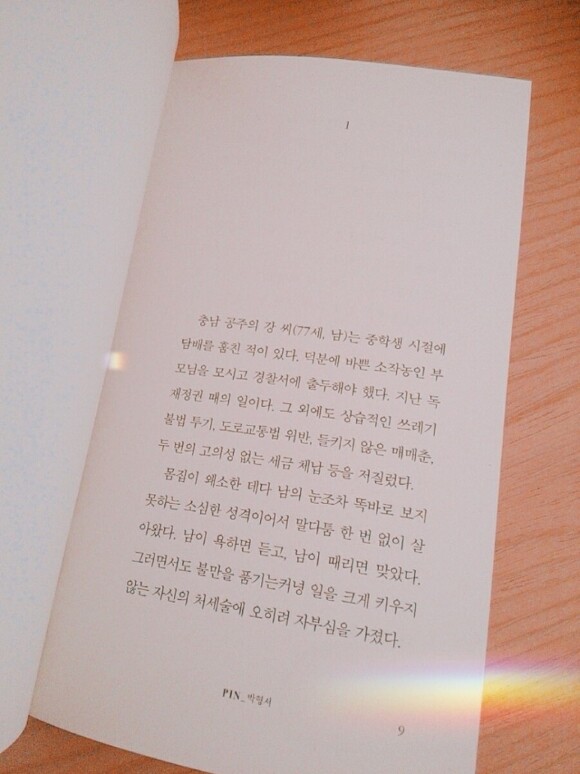 1
충남 공주의 강 씨(77세, 남)는 중학생 시절에
담배를 훔친 적이 있다. 덕분에 바쁜 소작농인 부
모님을 모시고 경찰서에 출두해야 했다. 지난 독
재정권 때의 일이다. 그 외에도 상습적인 쓰레기
불법 투기, 도로교통법 위반, 들키지 않은 매매춘,
두 번의 고의성 없는 세금 체납 등을 저질렀다.
몸집이 왜소한 데다 남의 눈조차 똑바로 보지
못하는 소심한 성격이어서 말다툼 한 번 없이 살
아왔다. 남이 욕하면 듣고, 남이 때리면 맞았다.
그러면서도 불만을 품기는커녕 일을 크게 키우지
않는 자신의 처세술에 오히려 자부심을 가졌다.
PIN_박형서
9